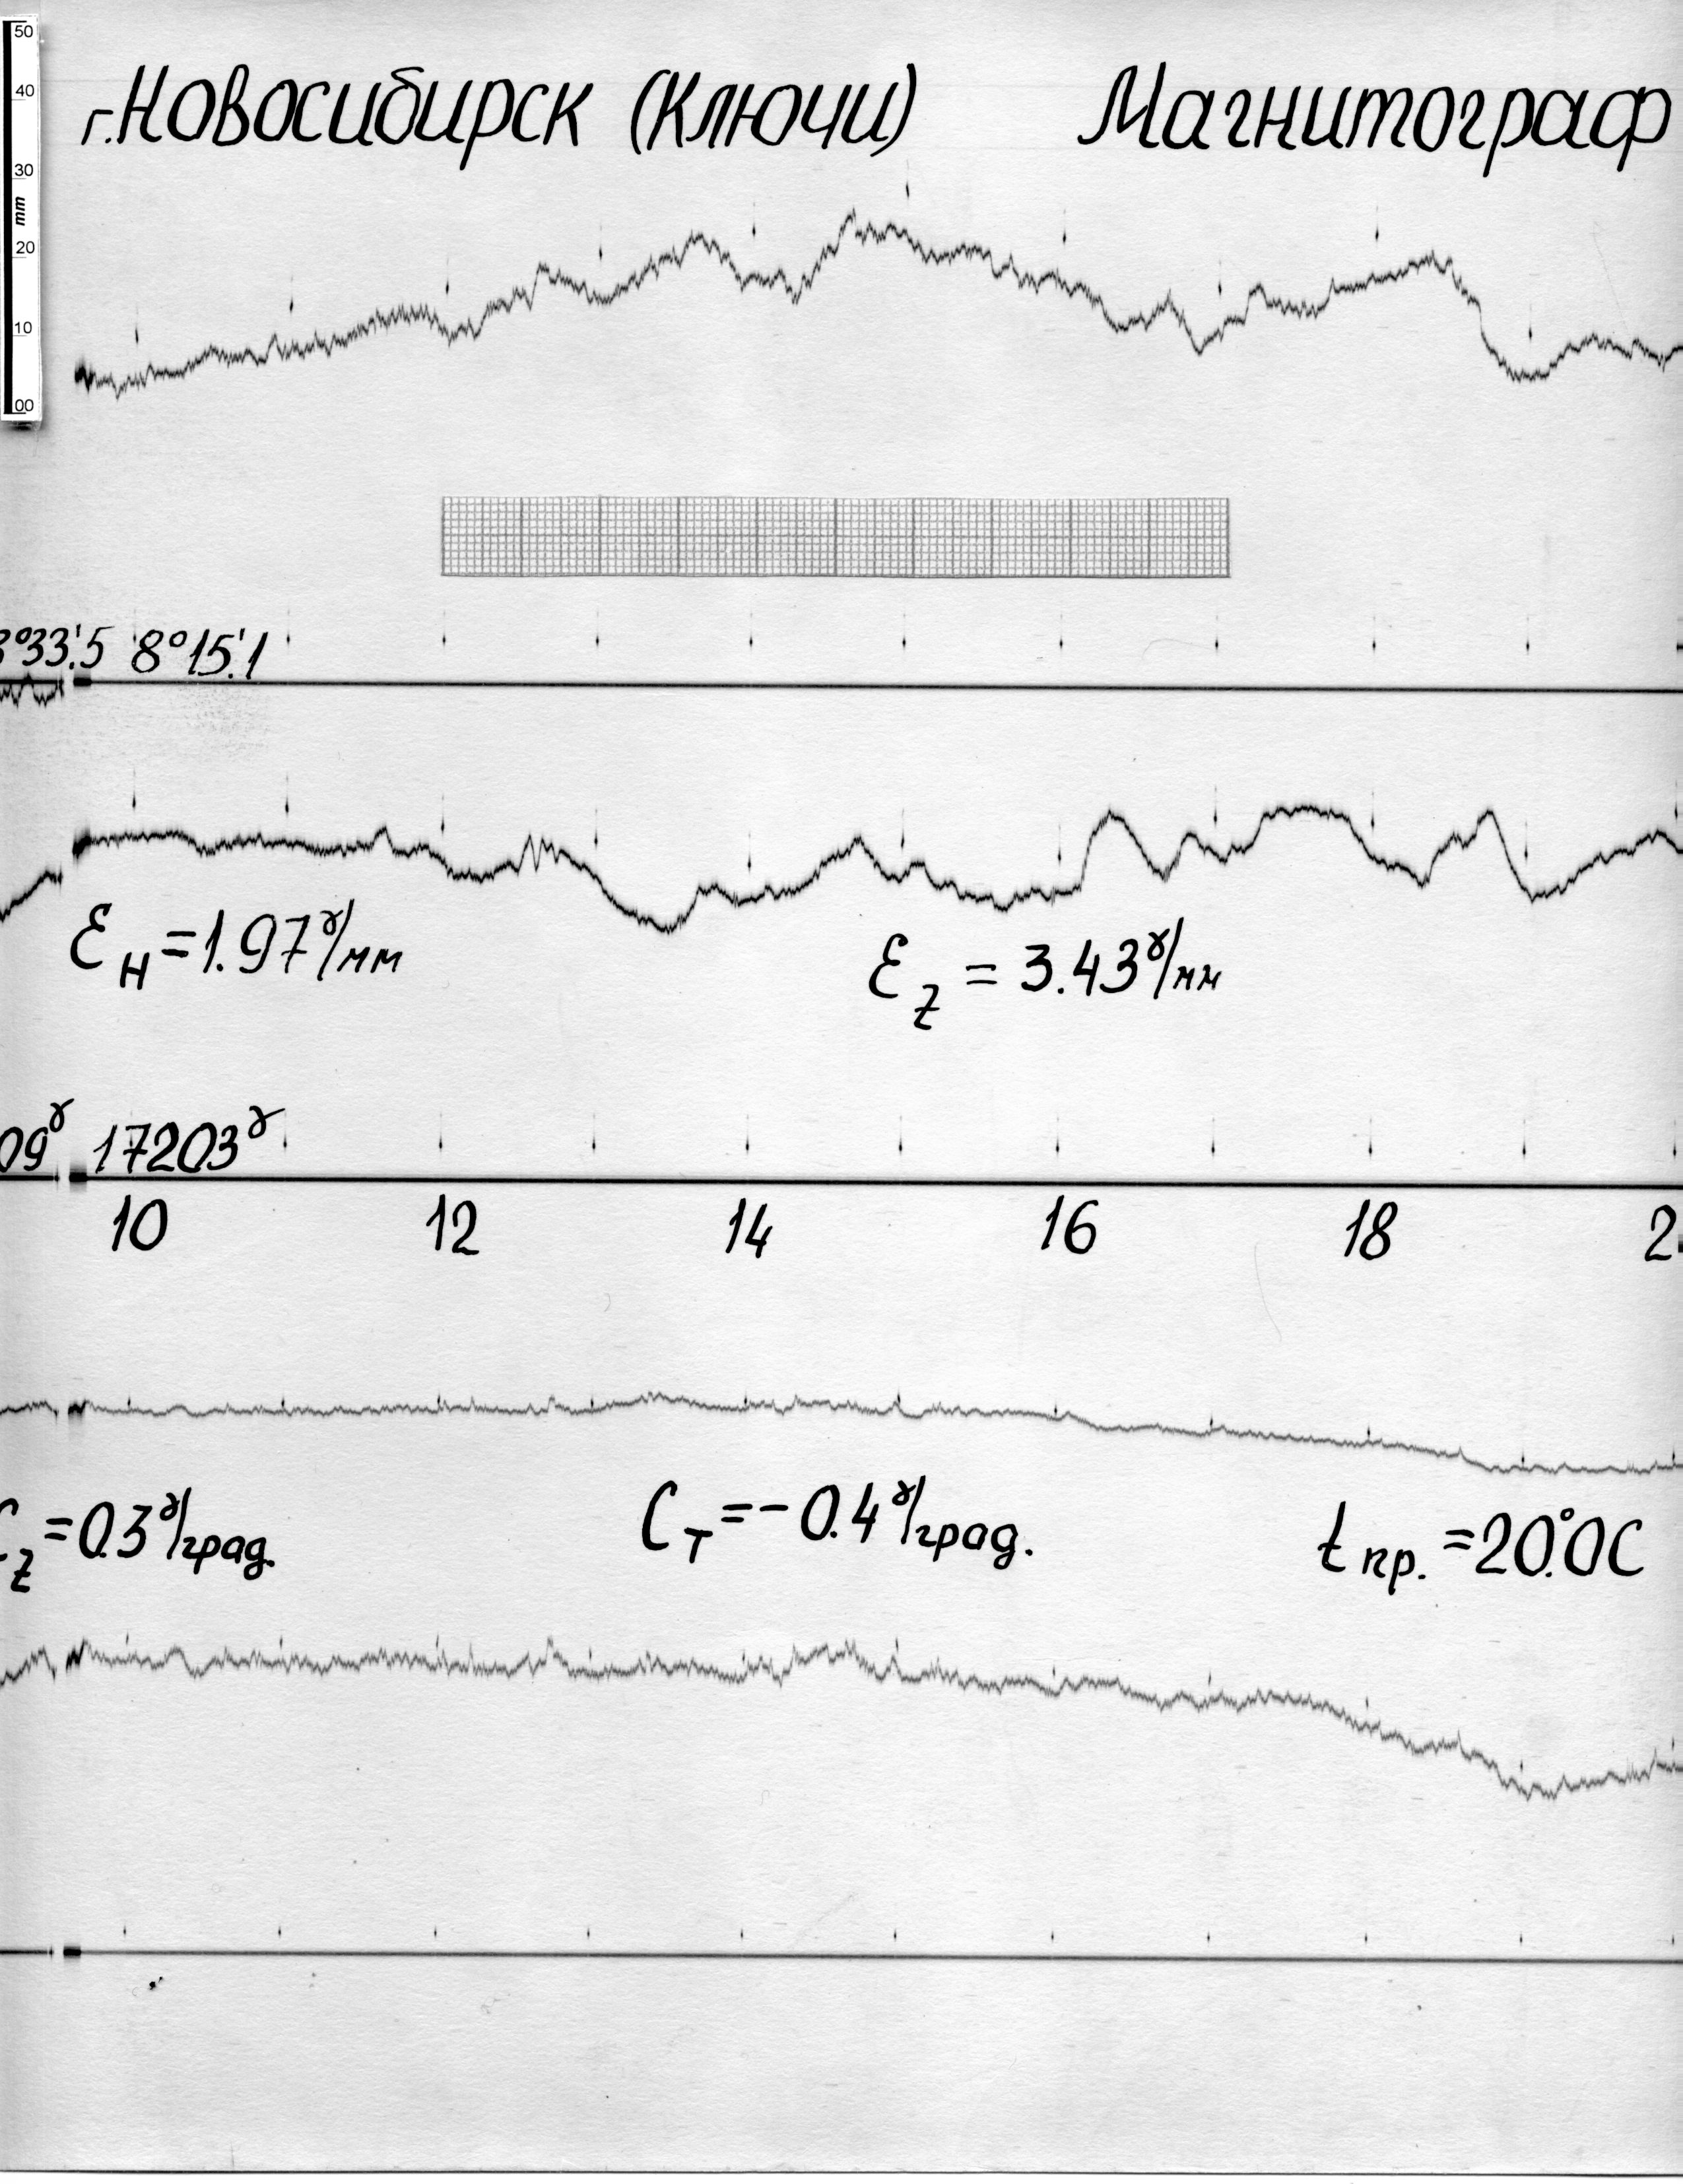 50
40
30
mm
20
10
00
г.Новосибирск (Ключи) Магнитограф
°33.'5 8°15.'1
Ɛ_H = 1.97 ɣ/мм
Ɛ_Z = 3.43 ɣ/мм
09ɣ 17203ɣ
10 12 14 16 18 2
C_Z = 0.3 ɣ/град. C_T = - 0.4 ɣ/град. t пр. = 20.°0С